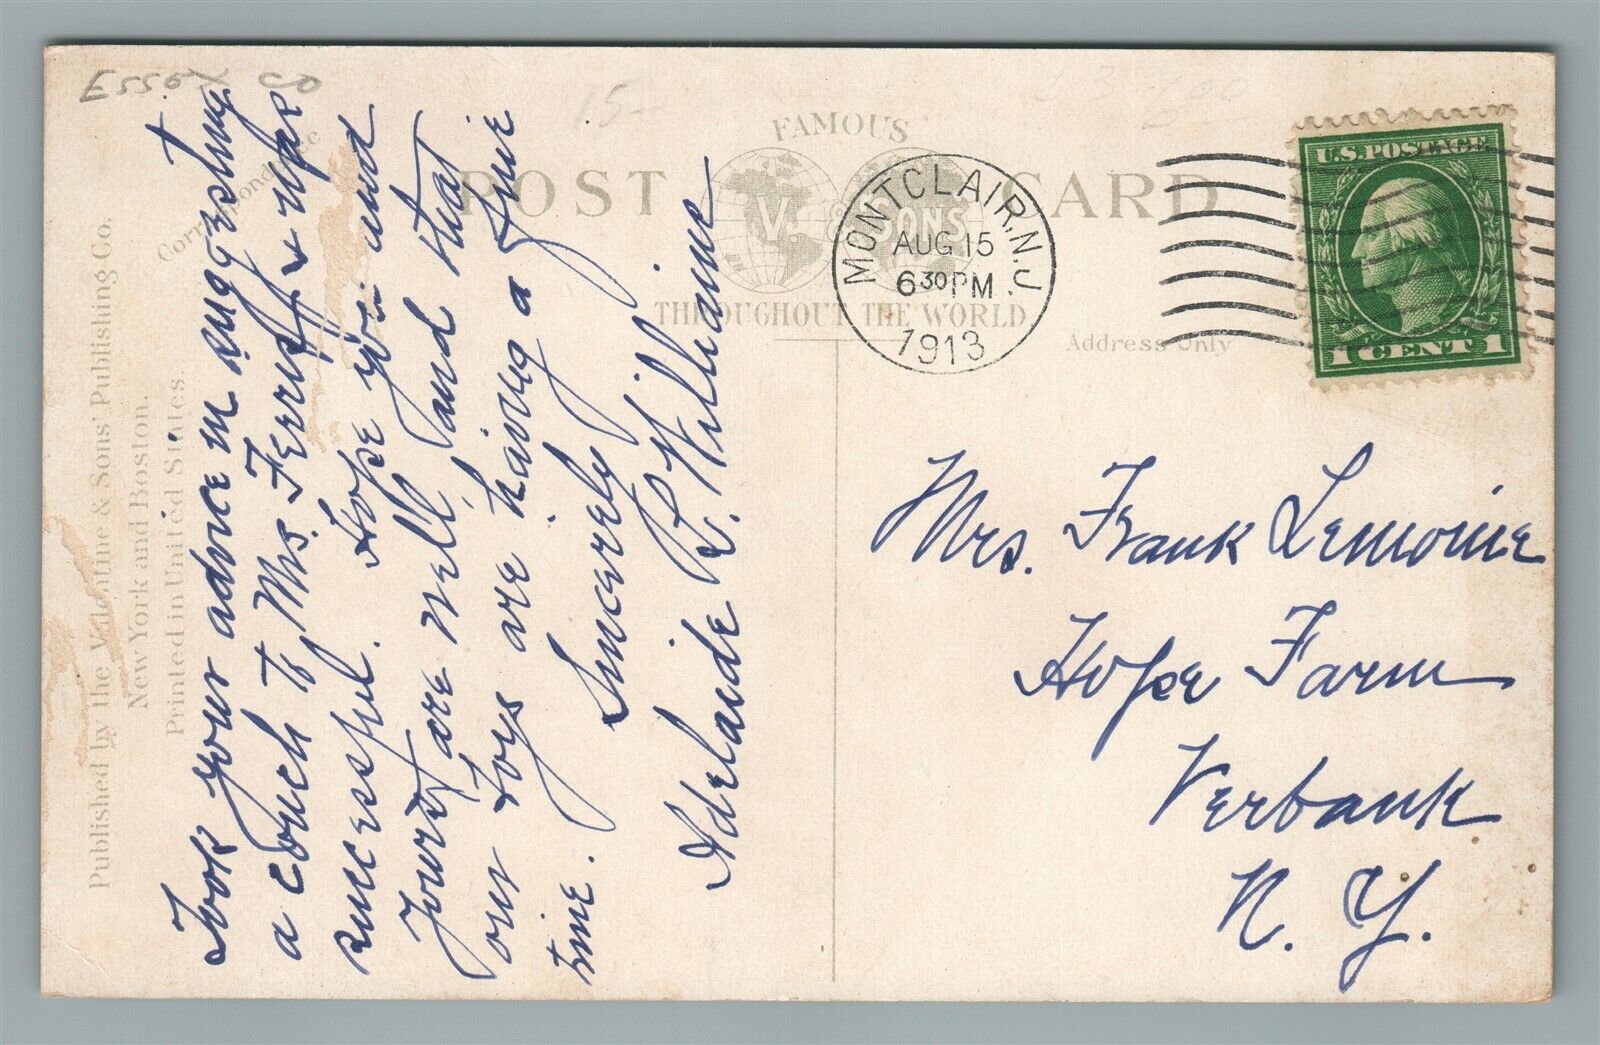 ESSEX CO
15-
Correspondence
FAMOUS
POST CARD
V. & SONS
THROUGHOUT THE WORLD
Address Only
Published by the Valentine & Sons' Publishing Co.
New York and Boston.
Printed in United States.
MONTCLAIR, N.J.
AUG 15
6 30 PM
1913
U.S. POSTAGE
1 CENT 1
Took your advice in suggesting
a couch to Mrs. Ferris & was
successful. Hope you and
are well and that
our boys are having a fine
time. Sincerely
Adelaide R. Williams
Mrs. Frank Lemoine
Hope Farm
Verbank
N. Y.